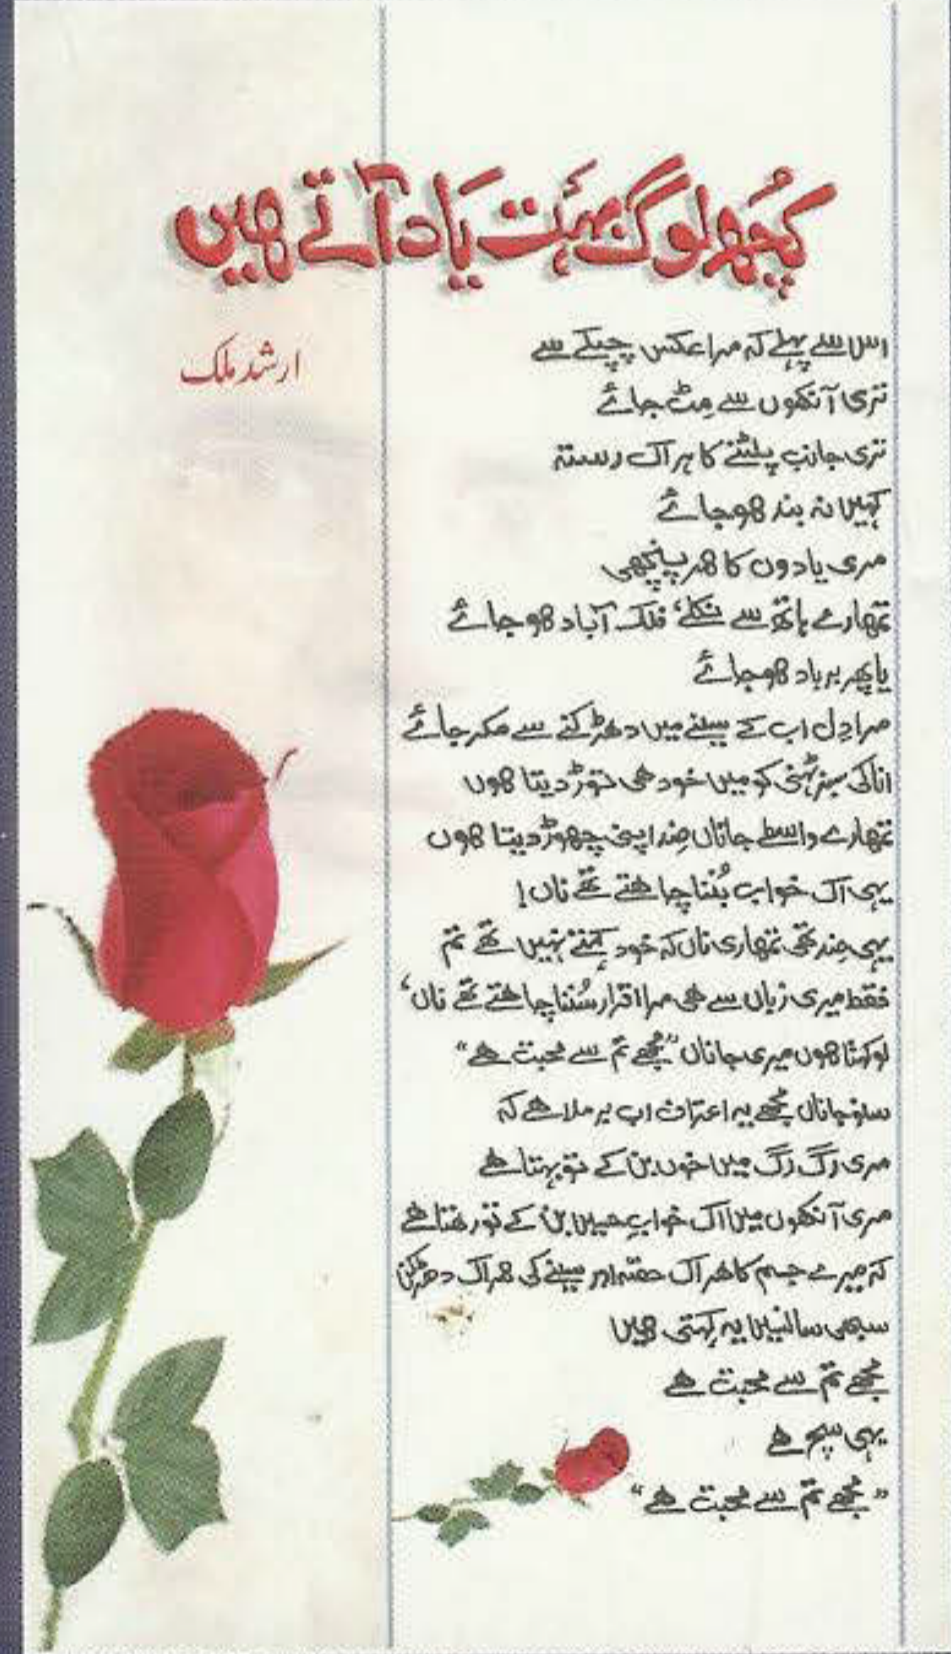 کچھ لوگ بہت یاد آتے ہیں
ارشد ملک
اس سے پہلے کہ مرا عکس چپکے سے
تری آنکھوں سے مِٹ جائے
تری جانب پلٹنے کا ہر اک رستہ
کہیں نہ بند ہوجائے
مری یادوں کا ہر پنچھی
تمھارے ہاتھ سے نکلے، فلک آباد ہوجائے
یا پھر برباد ہوجائے
مرا دِل اب کے سینے میں دھڑکنے سے مکر جائے
انا کی سبز ٹہنی کو میں خود ہی توڑ دیتا ہوں
تمھارے واسطے جاناں ضِد اپنی چھوڑ دیتا ہوں
یہی اک خواب بُننا چاہتے تھے ناں!
یہی ضِد تھی تمھاری ناں کہ خود کہتے نہیں تھے تم
فقط میری زباں سے ہی مرا اقرار سُننا چاہتے تھے ناں،
لو کہتا ہوں میری جاناں ”مجھے تم سے محبت ہے“
سنو جاناں مجھے یہ اعتراف اب برملا ہے کہ
مری رگ رگ میں خوں بن کے تو بہتا ہے
مری آنکھوں میں اک خوابِ حسیں بن کے تو رہتا ہے
کہ میرے جسم کا ہر اک حصّہ اور سینے کی ہر اک دھڑکن
سبھی سانسیں یہ کہتی ہیں
مجھے تم سے محبت ہے
یہی سچ ہے
”مجھے تم سے محبت ہے“